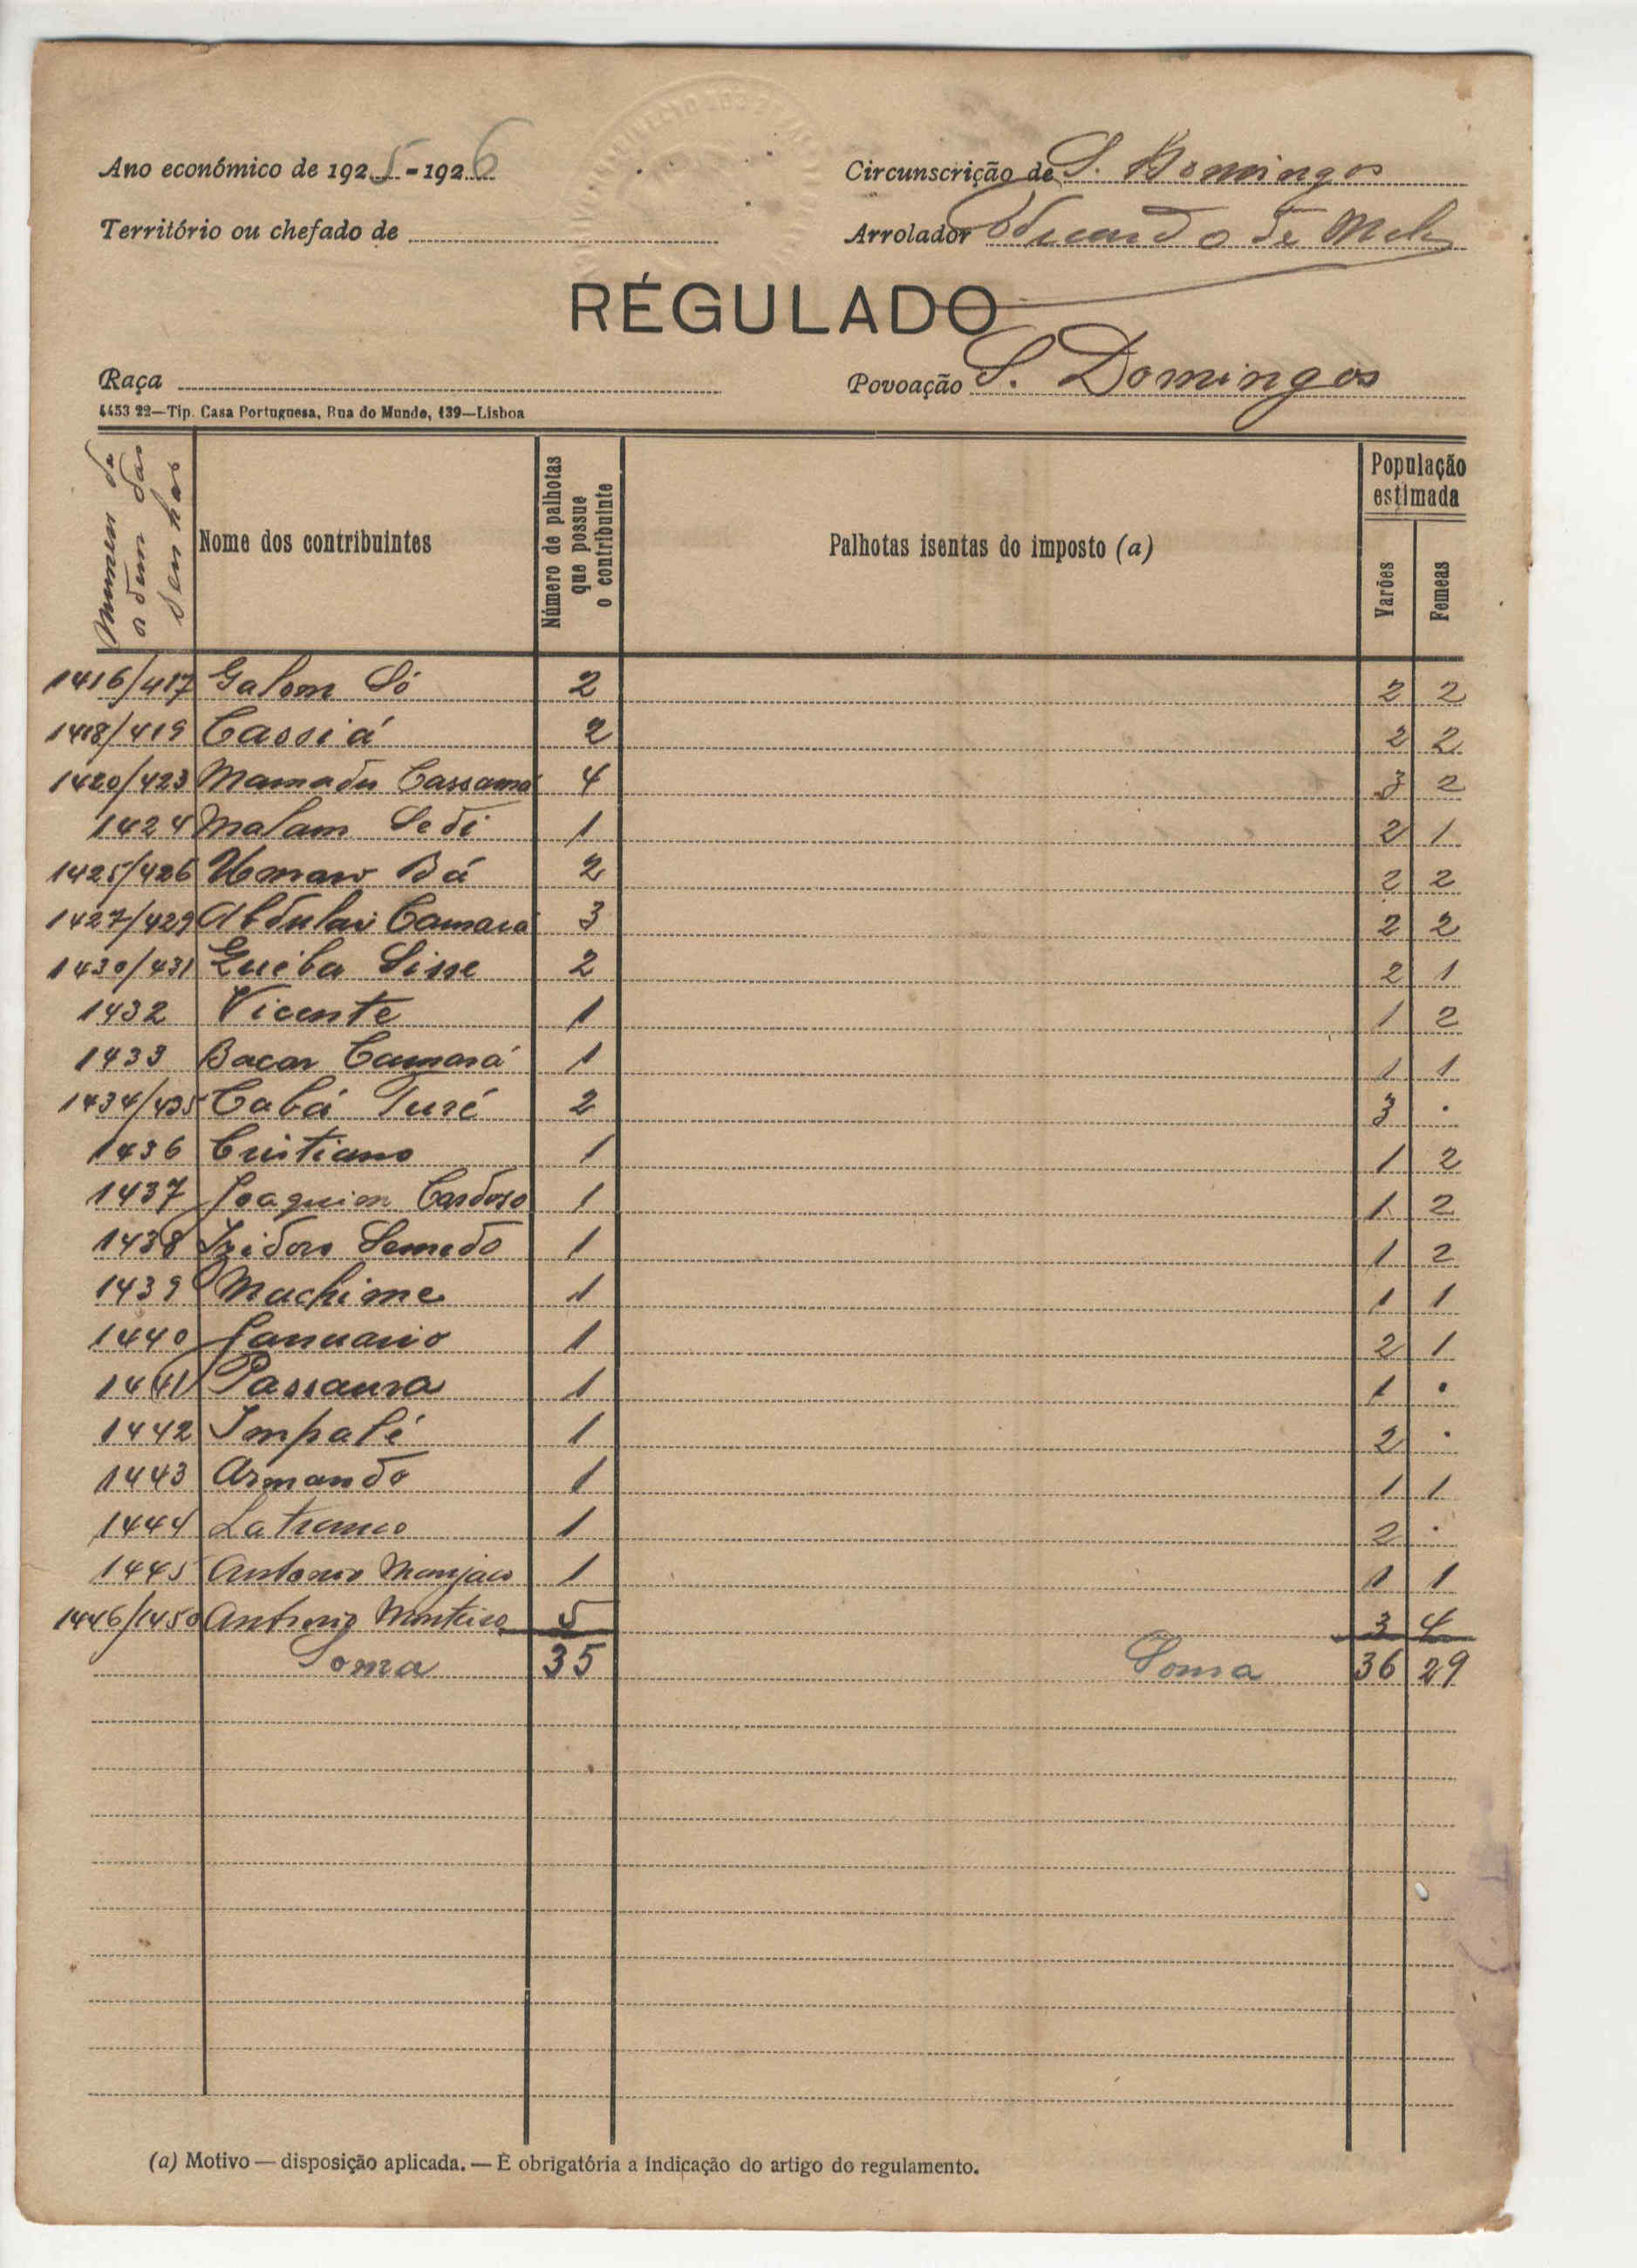 Ano económico de 1925-1926
Circunscrição de S. Domingos
Território ou chefado de
Arrolador Eduardo de Melo
RÉGULADO
Raça
Povoação S. Domingos
4453 22—Tip. Casa Portuguesa, Rua do Mundo, 139—Lisboa
Numero de ordem das senhas
Nome dos contribuintes
Número de palhotas que possue o contribuinte
Palhotas isentas do imposto (a)
População estimada
Varões
Femeas
1416/417 Galom Só 2 2 2
1418/419 Cassiá 2 2 2
1420/423 Mamadu Cassamá 4 3 2
1424 Malam Sedi 1 2 1
1425/426 Umaro Bá 2 2 2
1427/429 Abdulai Camará 3 2 2
1430/431 Queba Sisse 2 2 1
1432 Vicente 1 1 2
1433 Bacar Camará 1 1 1
1434/435 Cabá Turé 2 3 .
1436 Cristiano 1 1 2
1437 Joaquim Cardoso 1 1 2
1438 Izidoro Semedo 1 1 2
1439 Machime 1 1 1
1440 Januario 1 2 1
1441 1 1 .
1442 Impalé 1 2 .
1443 Armando 1 1 1
1444 1 2 .
1445 Antonio Manjaco 1 1 1
1446/1450 Antonio Monteiro 5 3 4
Soma 35 Soma 36 29
(a) Motivo — disposição aplicada. — É obrigatória a indicação do artigo do regulamento.